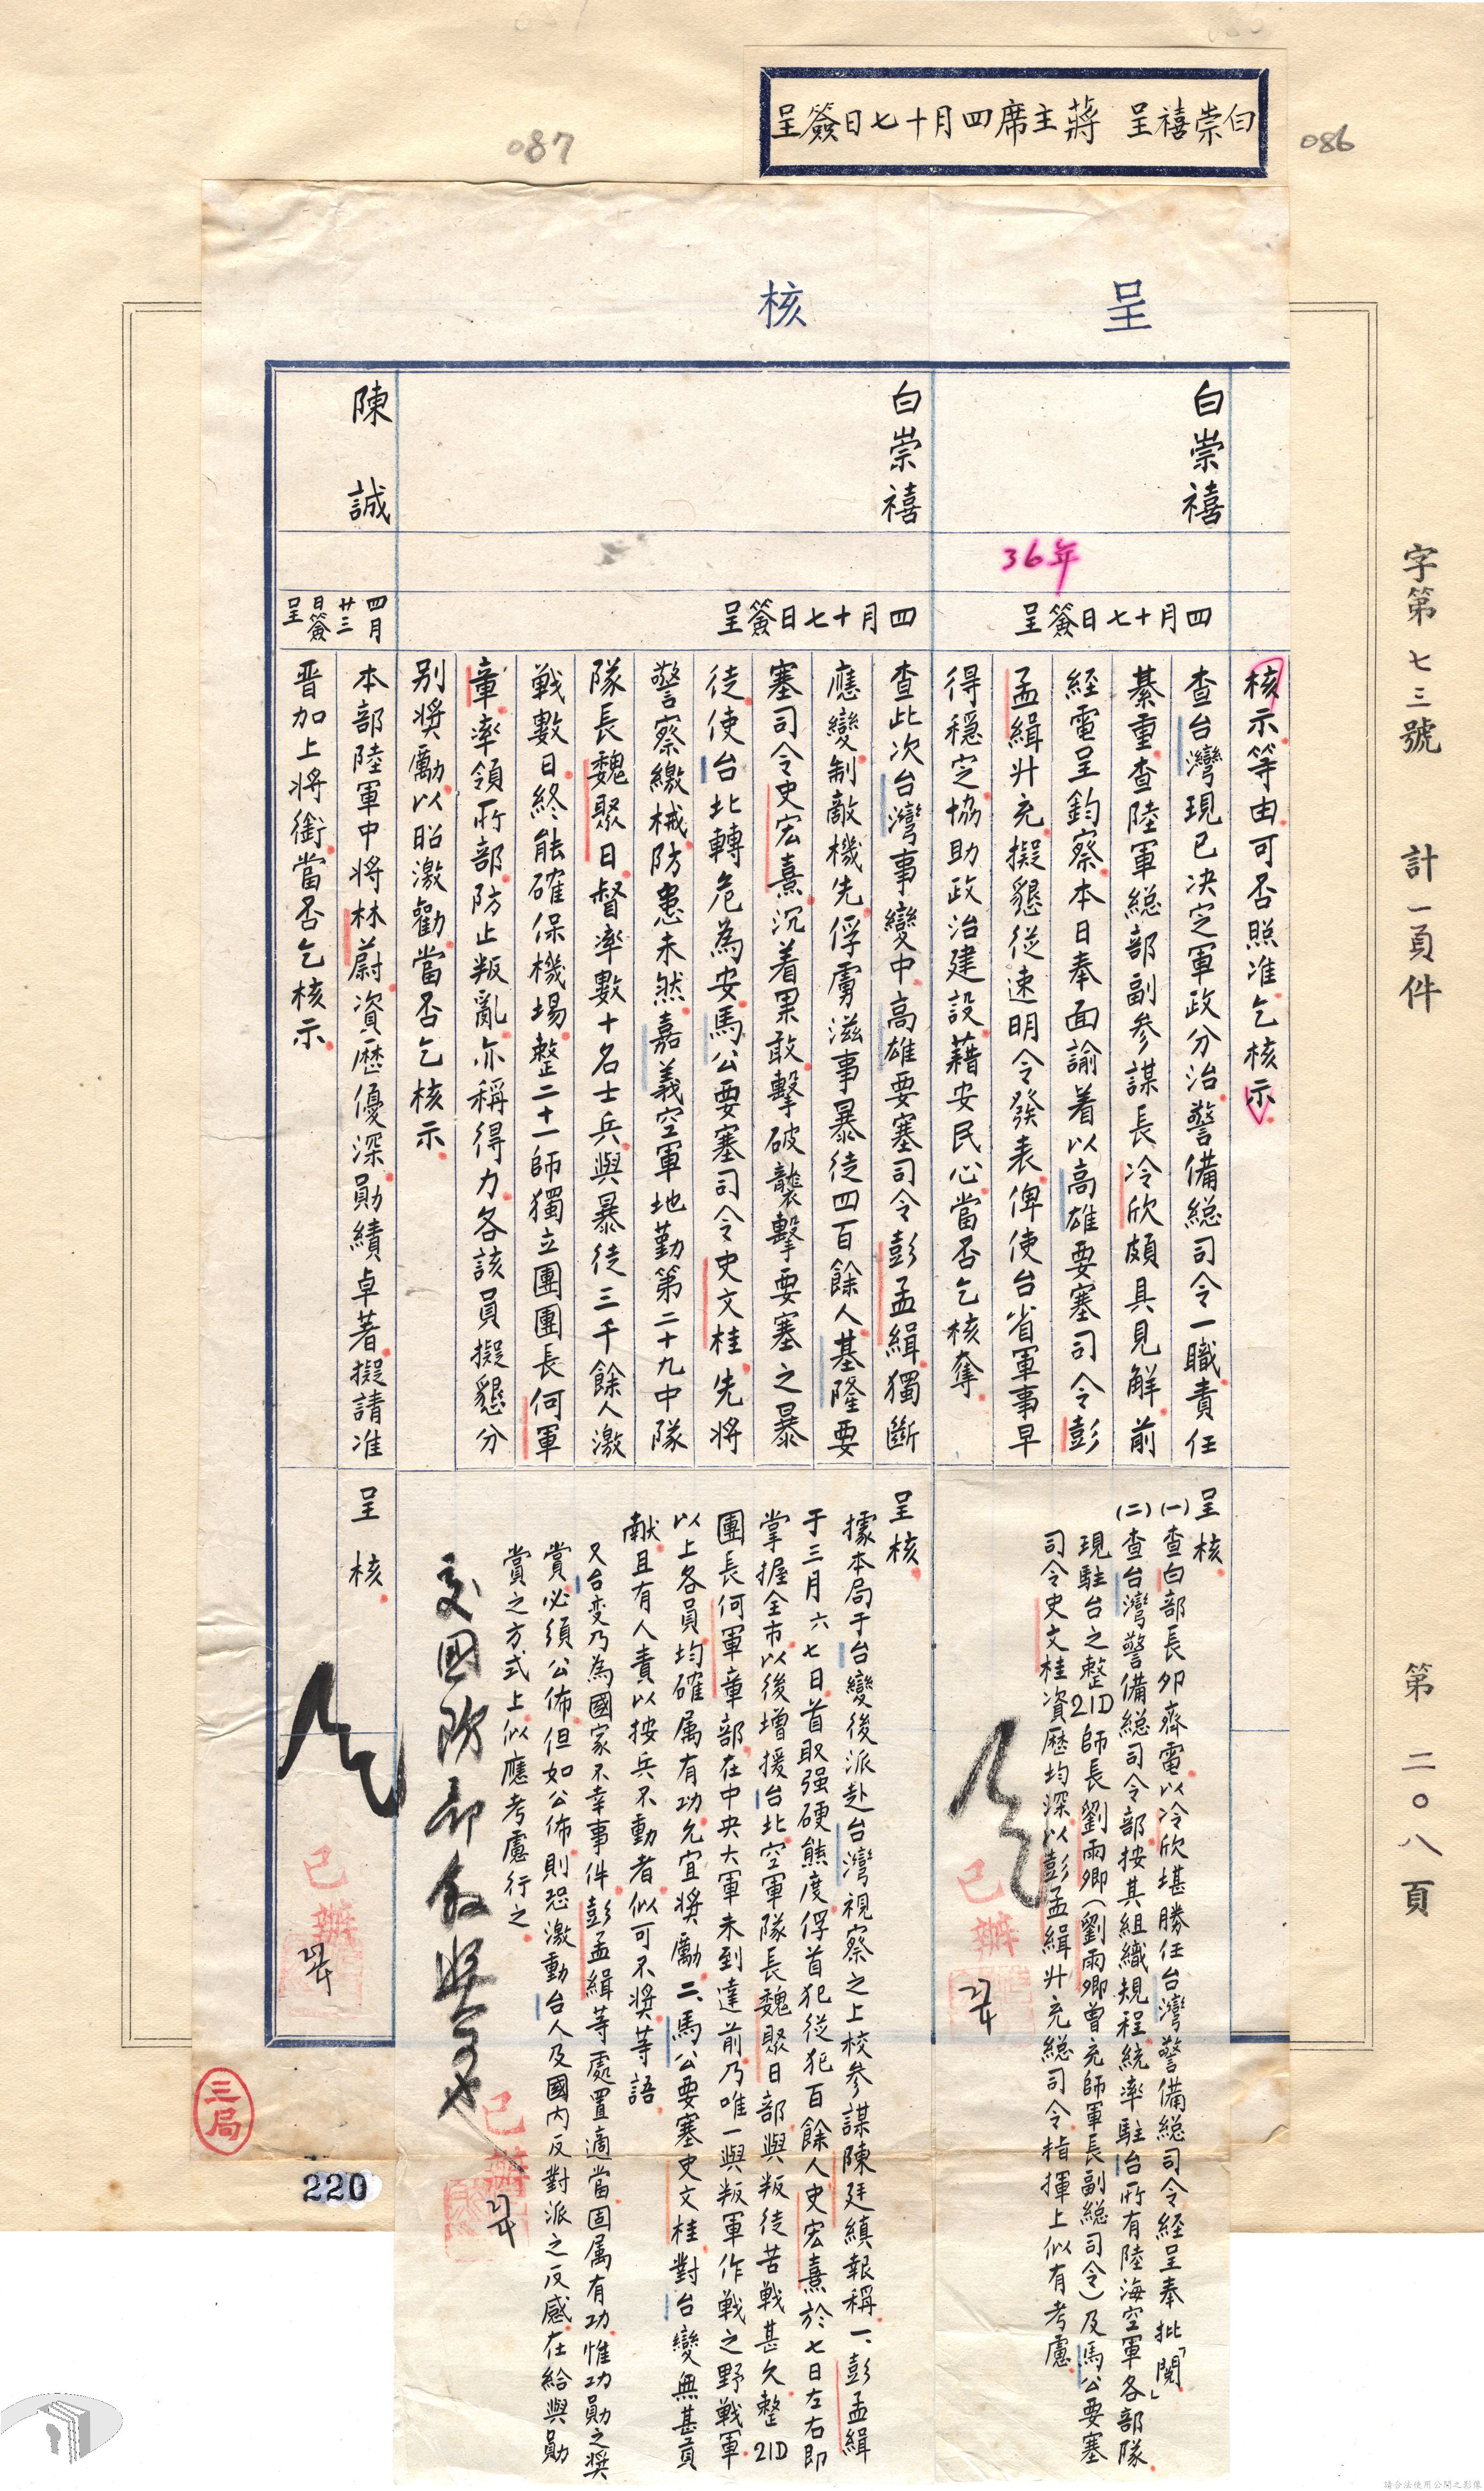 白崇禧呈 蔣主席四月十七日簽呈
086
087
呈
核
核示等由可否照准乞核示
白崇禧
36年
四月十七日簽呈
查台灣現已決定軍政分治警備総司令一職責任
綦重查陸軍総部副參謀長冷欣頗具見解前
経電呈鈞察本日奉面諭着以高雄要塞司令彭
孟緝升充擬懇從速明令發表俾使台省軍事早
得穩定協助政治建設藉安民心當否乞核奪
呈核
(一)查白部長卯齊電以冷欣堪勝任台灣警備総司令経呈奉批「閱」
(二)查台灣警備総司令部按其組織規程統率駐台所有陸海空軍各部隊
現駐台之整21D師長劉雨卿(劉雨卿曾充師軍長副総司令)及馬公要塞
司令史文桂資歷均深以彭孟緝升充総司令指揮上似有考慮
已辦
白崇禧
四月十七日簽呈
查此次台灣事變中高雄要塞司令彭孟緝獨斷
應變制敵機先俘虜滋事暴徒四百餘人基隆要
塞司令史宏熹沉着果敢擊破襲擊要塞之暴
徒使台北轉危為安馬公要塞司令史文桂先將
警察繳械防患未然嘉義空軍地勤第二十九中隊
隊長魏聚日督率數十名士兵與暴徒三千餘人激
戰數日終能確保機場整二十一師獨立團團長何軍
章率領所部防止叛亂亦稱得力各該員擬懇分
別獎勵以昭激勸當否乞核示
呈核
據本局于台變後派赴台灣視察之上校參謀陳廷縝報稱一、彭孟緝
于三月六七日首取強硬態度俘首犯從犯百餘人史宏熹於七日左右即
掌握全市以後增援台北空軍隊長魏聚日部與叛徒苦戰甚久整21D
團長何軍章部在中央大軍未到達前乃唯一與叛軍作戰之野戰軍
以上各員均確属有功允宜獎勵二、馬公要塞史文桂對台變無甚貢
献且有人責以按兵不動者似可不獎等語
又台变乃為國家不幸事件彭孟緝等處置適當固属有功惟功勛之獎
賞必須公佈但如公佈則恐激動台人及國內反對派之反感在給與勛
賞之方式上似應考慮行之
交國防部敘獎可也
已辦
陳誠
四月廿三日簽呈
本部陸軍中將林蔚資歷優深勛績卓著擬請准
晉加上將銜當否乞核示
呈核
已辦
三局
220
字第七三號 計一頁件 第二〇八頁
請合法使用公開之影像